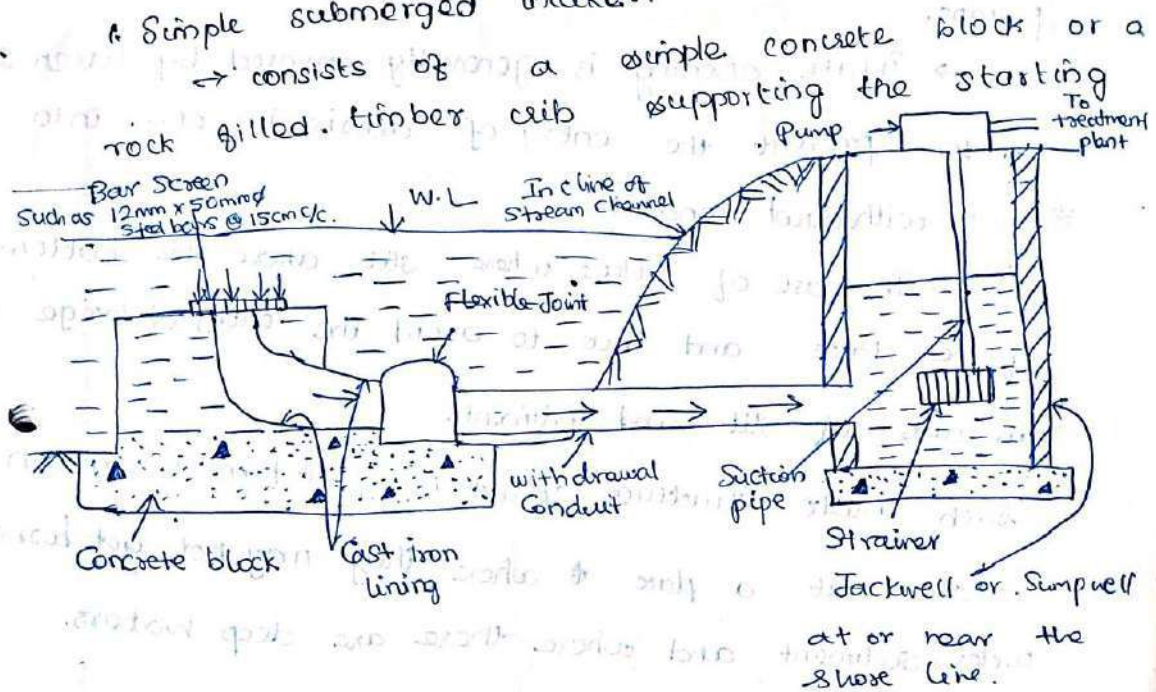 Simple submerged
→ consists of a simple concrete block or a
rock filled. timber crib supporting the starting
Pump →
To
treatment
plant
Bar Screen
Such as 12mm x 50mmφ
Steel bars @ 15cm c/c.
W.L
Incline of
Stream Channel
Flexible-Joint
withdrawal
Conduit
Suction
pipe
Concrete block
Cast iron
lining
Strainer
Jackwell or Sumpwell
at or near the
shore line.